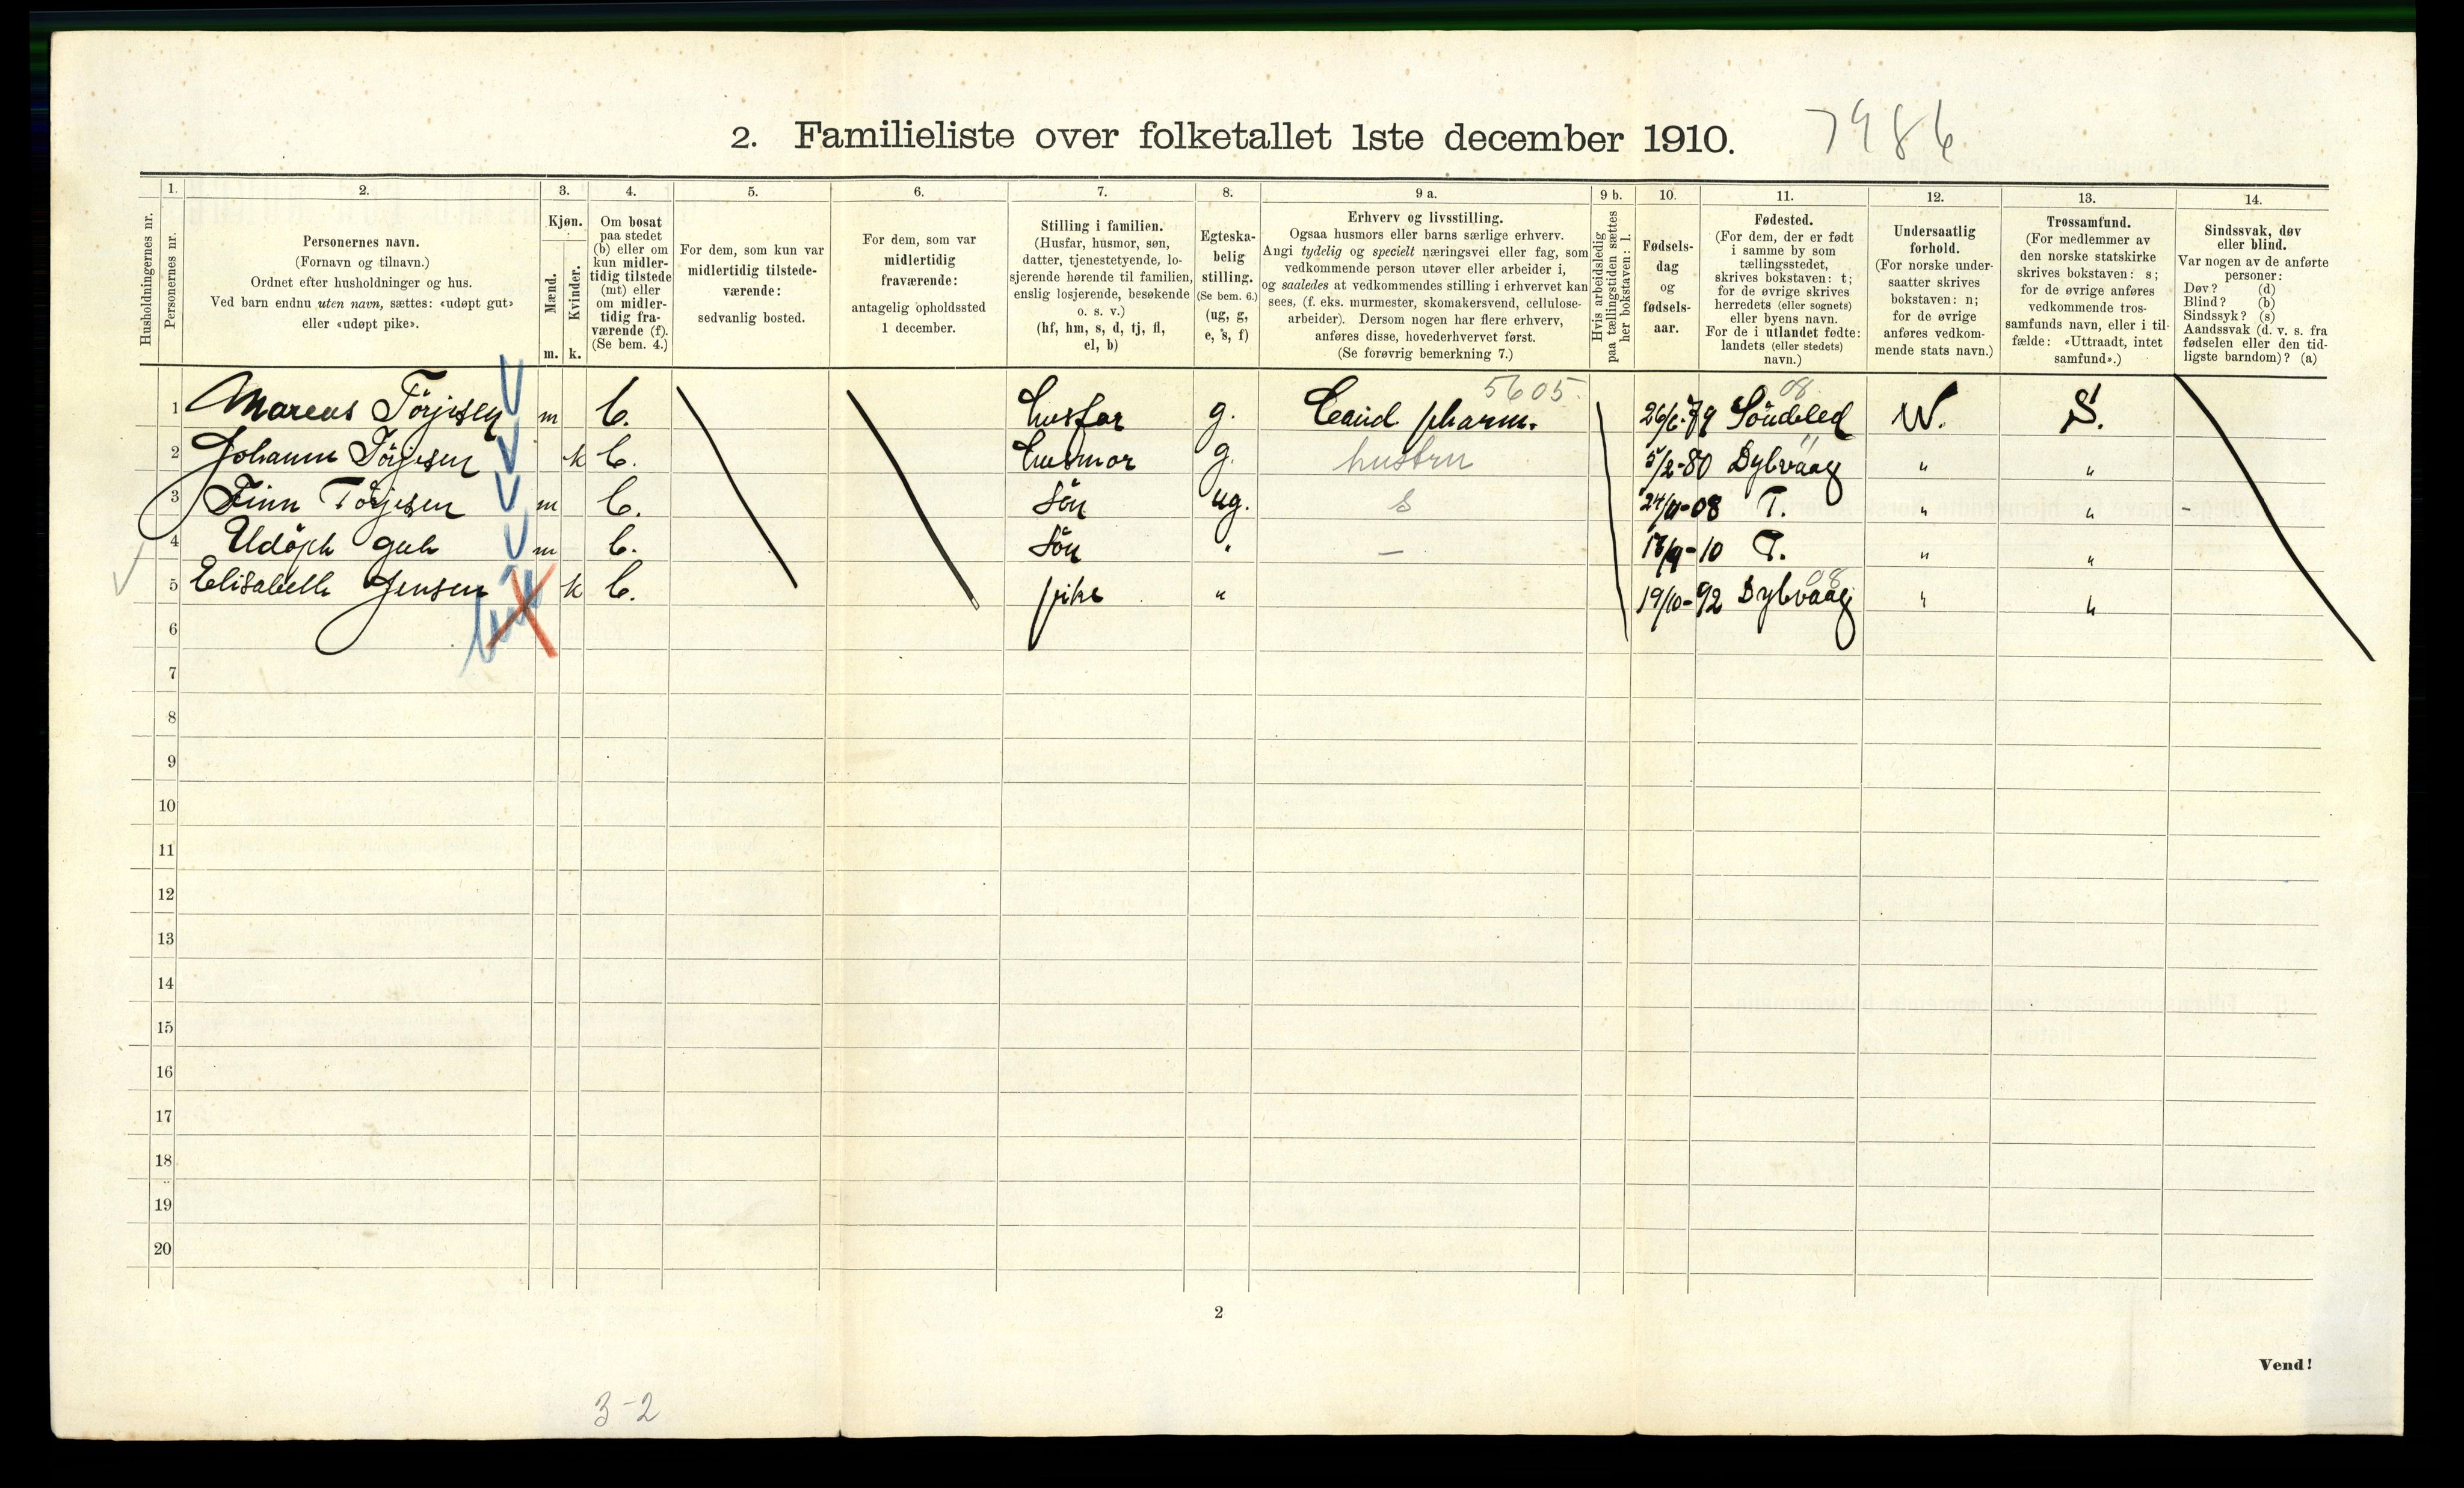 2. Familieliste over folketallet 1ste december 1910. 7986
Husholdningernes nr.
1. Personernes nr.
2. Personernes navn.
(Fornavn og tilnavn.)
Ordnet efter husholdninger og hus.
Ved barn endnu uten navn, sættes: «udøpt gut»
eller «udøpt pike».
3. Kjøn.
Mænd. m.
Kvinder. k.
4. Om bosat
paa stedet
(b) eller om
kun midler-
tidig tilstede
(mt) eller
om midler-
tidig fra-
værende (f).
(Se bem. 4.)
5. For dem, som kun var
midlertidig tilstede-
værende:
sedvanlig bosted.
6. For dem, som var
midlertidig
fraværende:
antagelig opholdssted
1 december.
7. Stilling i familien.
(Husfar, husmor, søn,
datter, tjenestetyende, lo-
sjerende hørende til familien,
enslig losjerende, besøkende
o. s. v.)
(hf, hm, s, d, tj, fl,
el, b)
8. Egteska-
belig
stilling.
(Se bem. 6.)
(ug, g,
e, s, f)
9 a. Erhverv og livsstilling.
Ogsaa husmors eller barns særlige erhverv.
Angi tydelig og specielt næringsvei eller fag, som
vedkommende person utøver eller arbeider i,
og saaledes at vedkommendes stilling i erhvervet kan
sees, (f. eks. murmester, skomakersvend, cellulose-
arbeider). Dersom nogen har flere erhverv,
anføres disse, hovederhvervet først.
(Se forøvrig bemerkning 7.)
9 b. Hvis arbeidsledig
paa tællingstiden sættes
her bokstaven: l.
10. Fødsels-
dag
og
fødsels-
aar.
11. Fødested.
(For dem, der er født
i samme by som
tællingsstedet,
skrives bokstaven: t;
for de øvrige skrives
herredets (eller sognets)
eller byens navn.
For de i utlandet fødte:
landets (eller stedets)
navn.)
12. Undersaatlig
forhold.
(For norske under-
saatter skrives
bokstaven: n;
for de øvrige
anføres vedkom-
mende stats navn.)
13. Trossamfund.
(For medlemmer av
den norske statskirke
skrives bokstaven: s;
for de øvrige anføres
vedkommende tros-
samfunds navn, eller i til-
fælde: «Uttraadt, intet
samfund».)
14. Sindssvak, døv
eller blind.
Var nogen av de anførte
personer:
Døv? (d)
Blind? (b)
Sindssyk? (s)
Aandssvak (d. v. s. fra
fødselen eller den tid-
ligste barndom)? (a)
5605. 08
1 Marcus Törjesen m b. husfar g. Cand. pharm. 79 Söndeled N. S.
2 Johanne Törjesen k b. husmor g. hustru 5/2-80 Dybvaag " "
3 Finn Törjesen m b. Sön ug. s 08 T. " " -
4 Udöpt gut m b. Sön " — 10 T. " "
08
5 Elisabeth Jensen k b. pike " 19/10-92 Dybvaag " "
6
7
8
9
10
11
12
13
14
15
16
17
18
19
20
2
Vend!
3-2